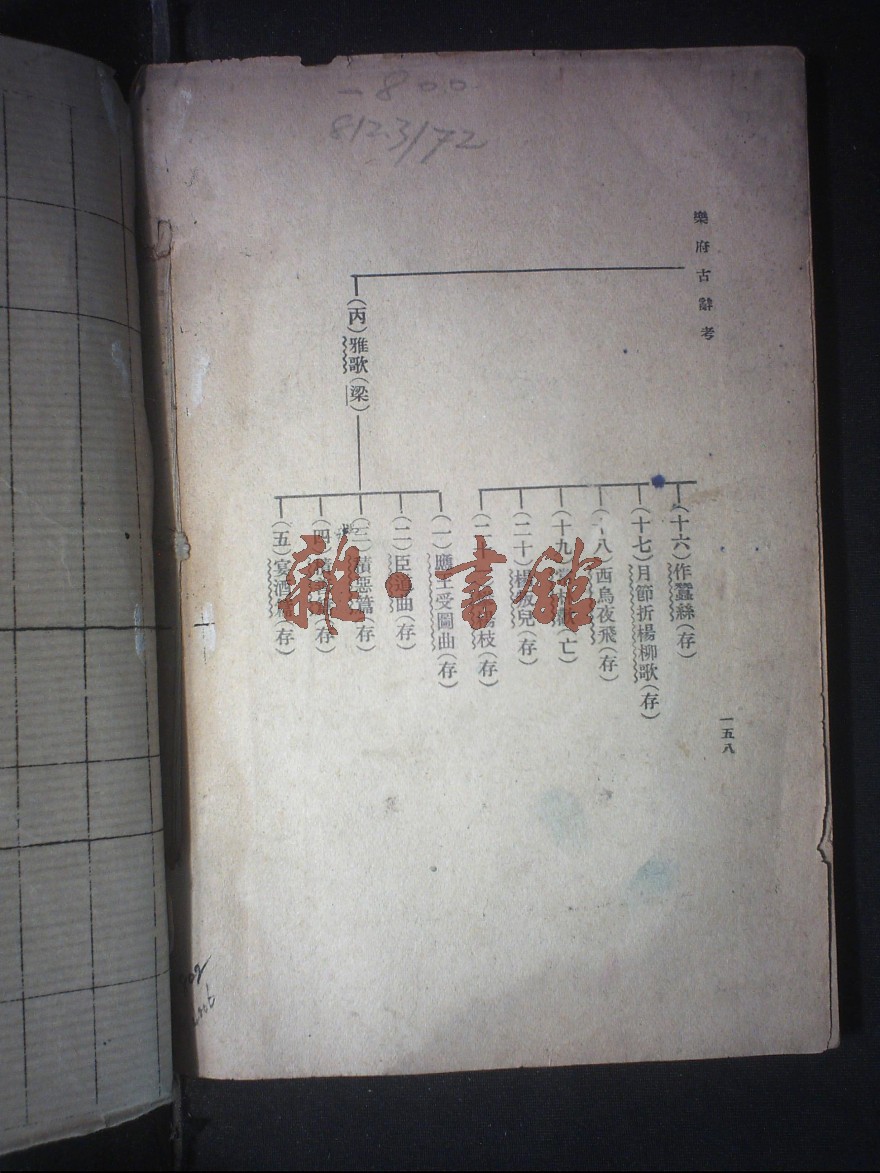 -800
812.3/72
樂府古辭考
(十六)作蠶絲(存)
(十七)月節折楊柳歌(存)
八)西烏夜飛(存)
(十九)亡)
(二十)楊兒(存)
(二枝(存)
(丙)雅歌(梁)
(一)應王受圖曲(存)
(二)臣道曲(存)
(三)積惡篇(存)
(四)存)
(五)宴酒存)
一五八
雜·書館